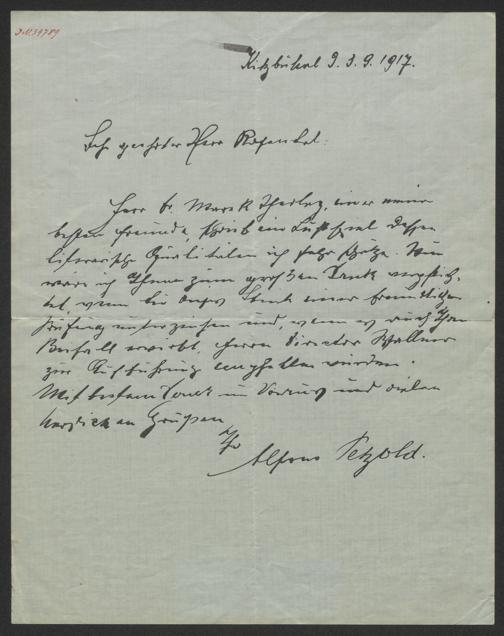 J.N. 39789
Kitzbühel 9. 3. 9. 1917.
Sehr geehrter Herr Rosenthal:
Herr Dr. Marek Scherlag, einer meiner
besten Freunde, schrieb ein Lustspiel dessen
literarische Qualitäten ich sehr schätze. Nun
wäre ich Ihnen zum großen Dank verpflich-
tet, wenn Sie dieses Stück einer freundlichen
Prüfung unterziehen und, wenn es auch Ihren
Beifall erwirbt, Herrn Direktor Wallner
zur Aufführung empfehlen würden.
Mit bestem Dank im Voraus und vielen
herzlichen Grüßen
Ihr
Alfons Petzold.